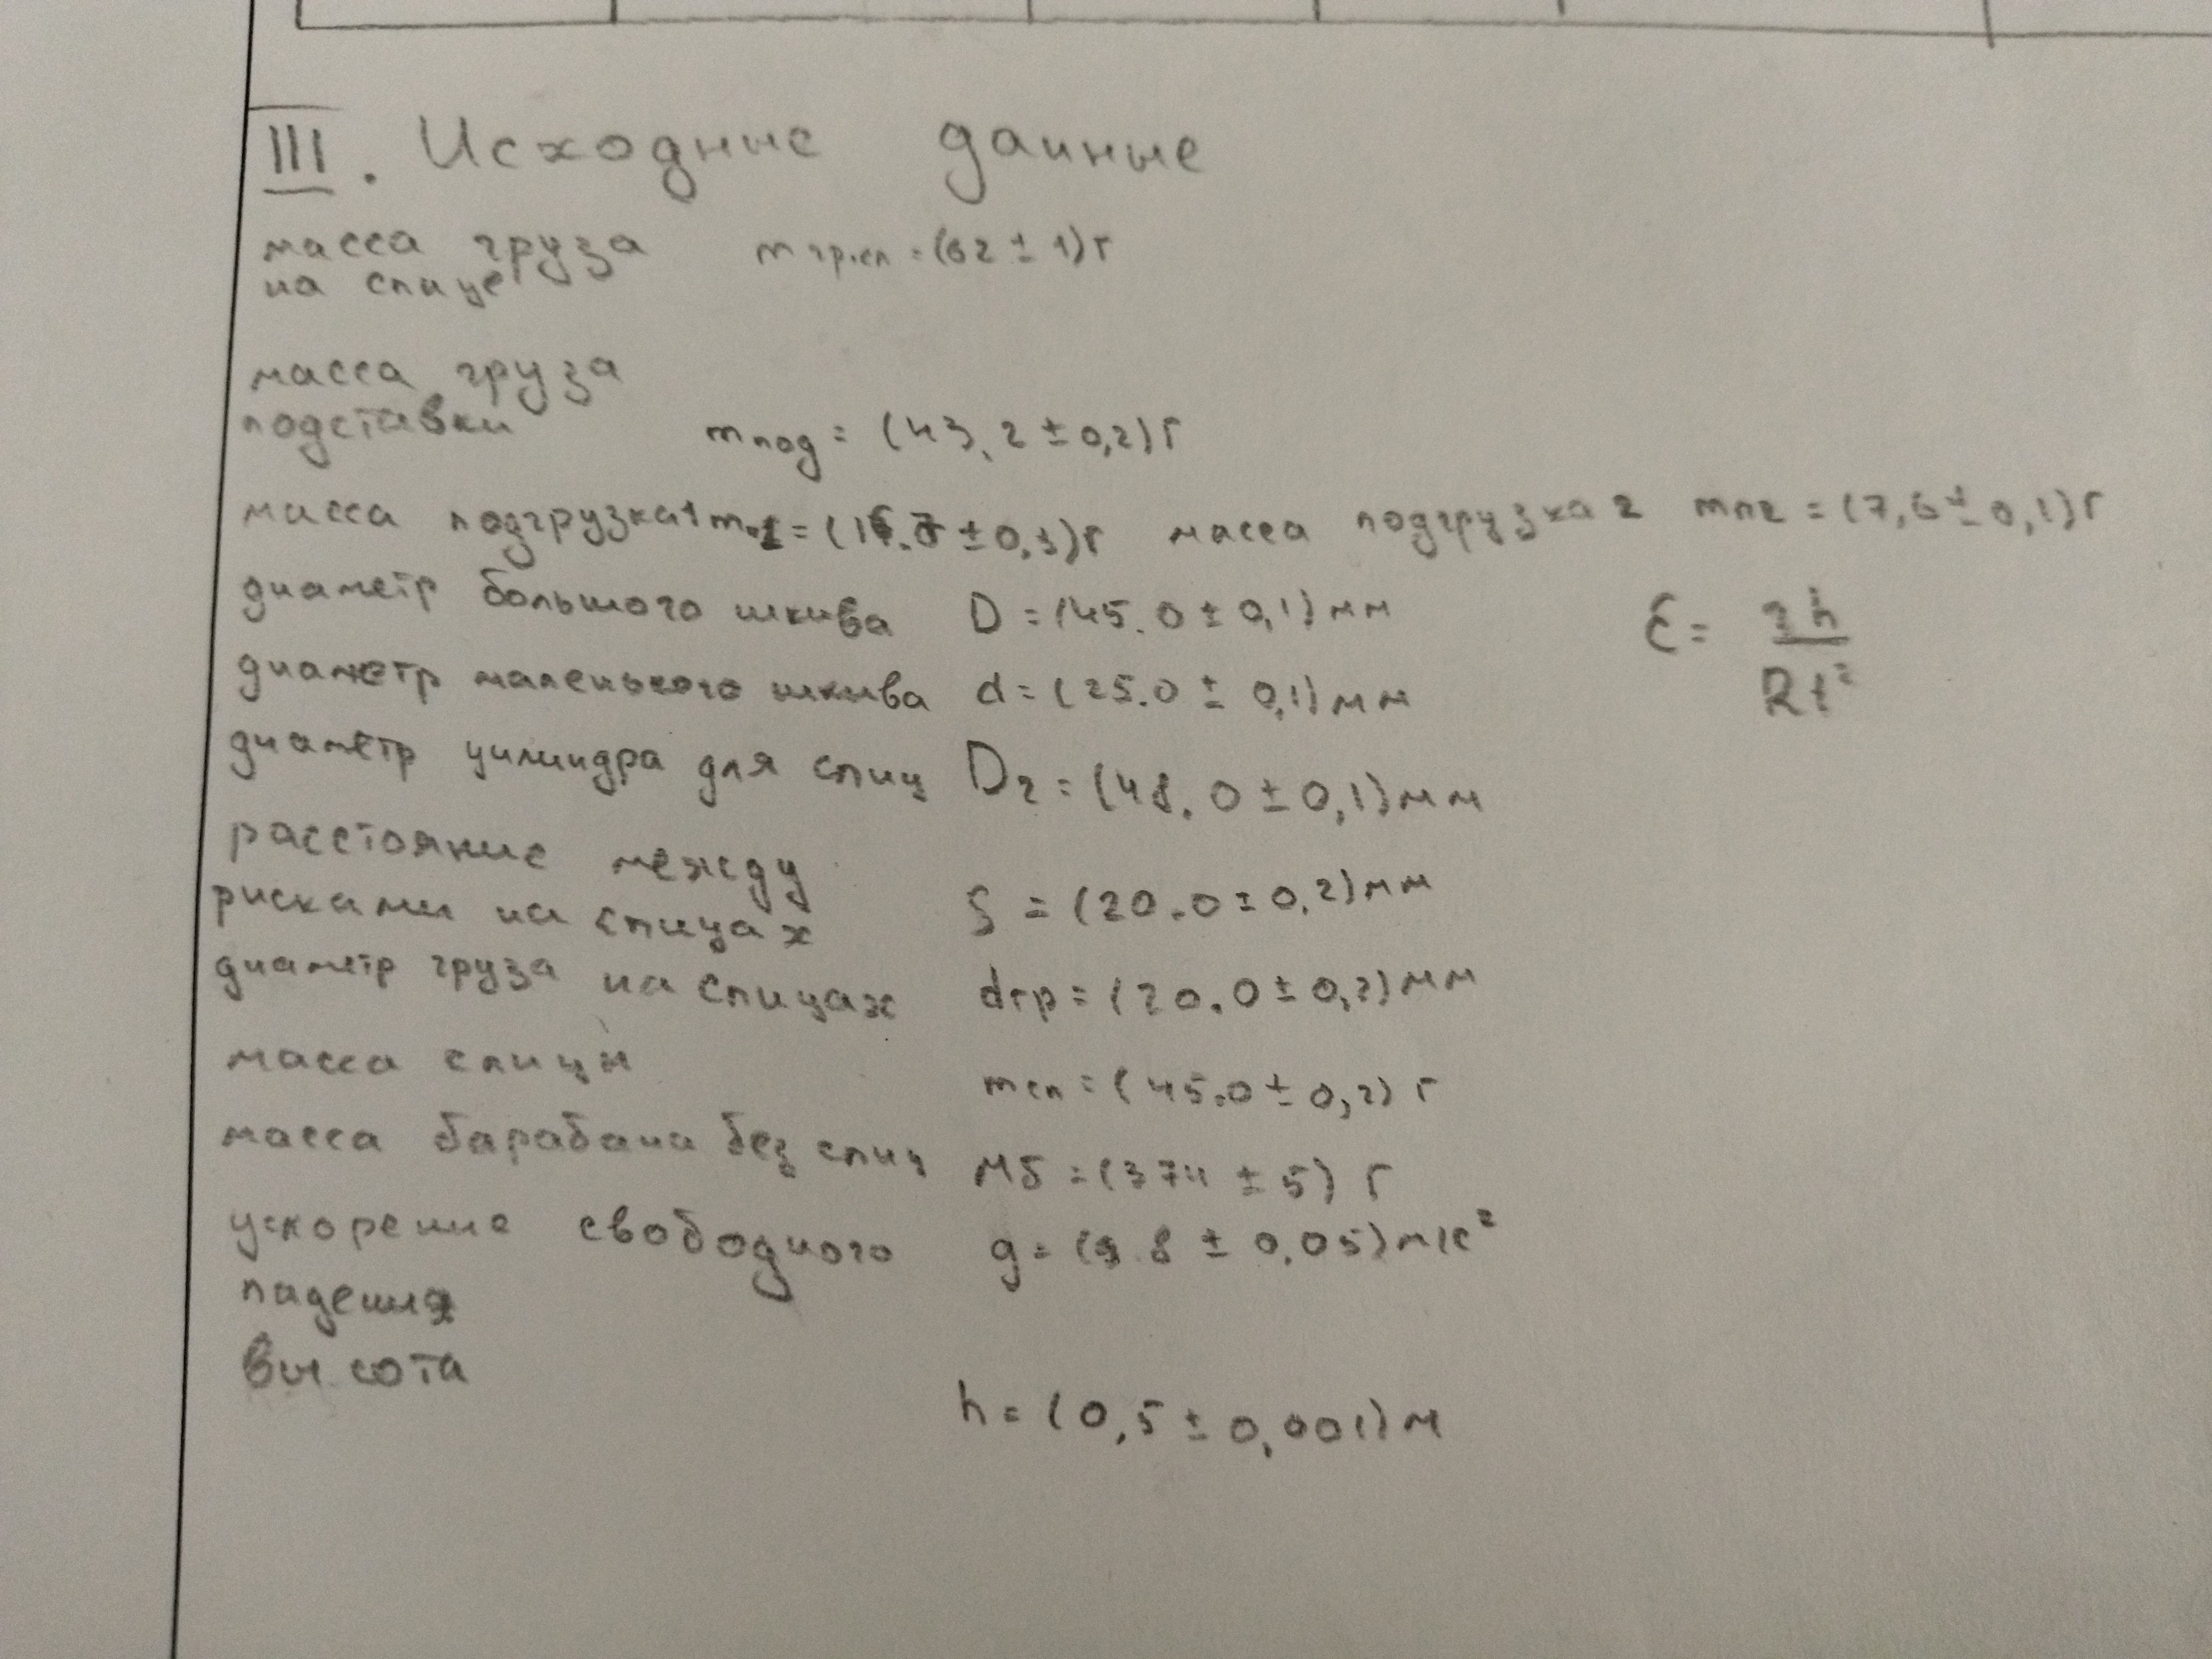 III. Исходные данные
масса груза mгр.сп = (62 ± 1) г
на спице
масса груза
подставки mпод = (43,2 ± 0,2) г
масса подгрузка 1 = ( ± 0,3) г масса подгрузка 2 mп2 = (7,6 ± 0,1) г
диаметр большого шкива D = (45.0 ± 0,1) мм
ε = 2h / Rt²
диаметр маленького шкива d = (25.0 ± 0,1) мм
диаметр цилиндра для спиц D2 = (48.0 ± 0,1) мм
расстояние между
рисками на спицах = (20.0 ± 0,2) мм
диаметр груза на спицах dгр = (20.0 ± 0,2) мм
масса спицы mсп = (45.0 ± 0,2) г
масса барабана без спиц Mб = (374 ± 5) г
ускорение свободного g = (9.8 ± 0,05) м/с²
падения
высота
h = (0,5 ± 0,001) м